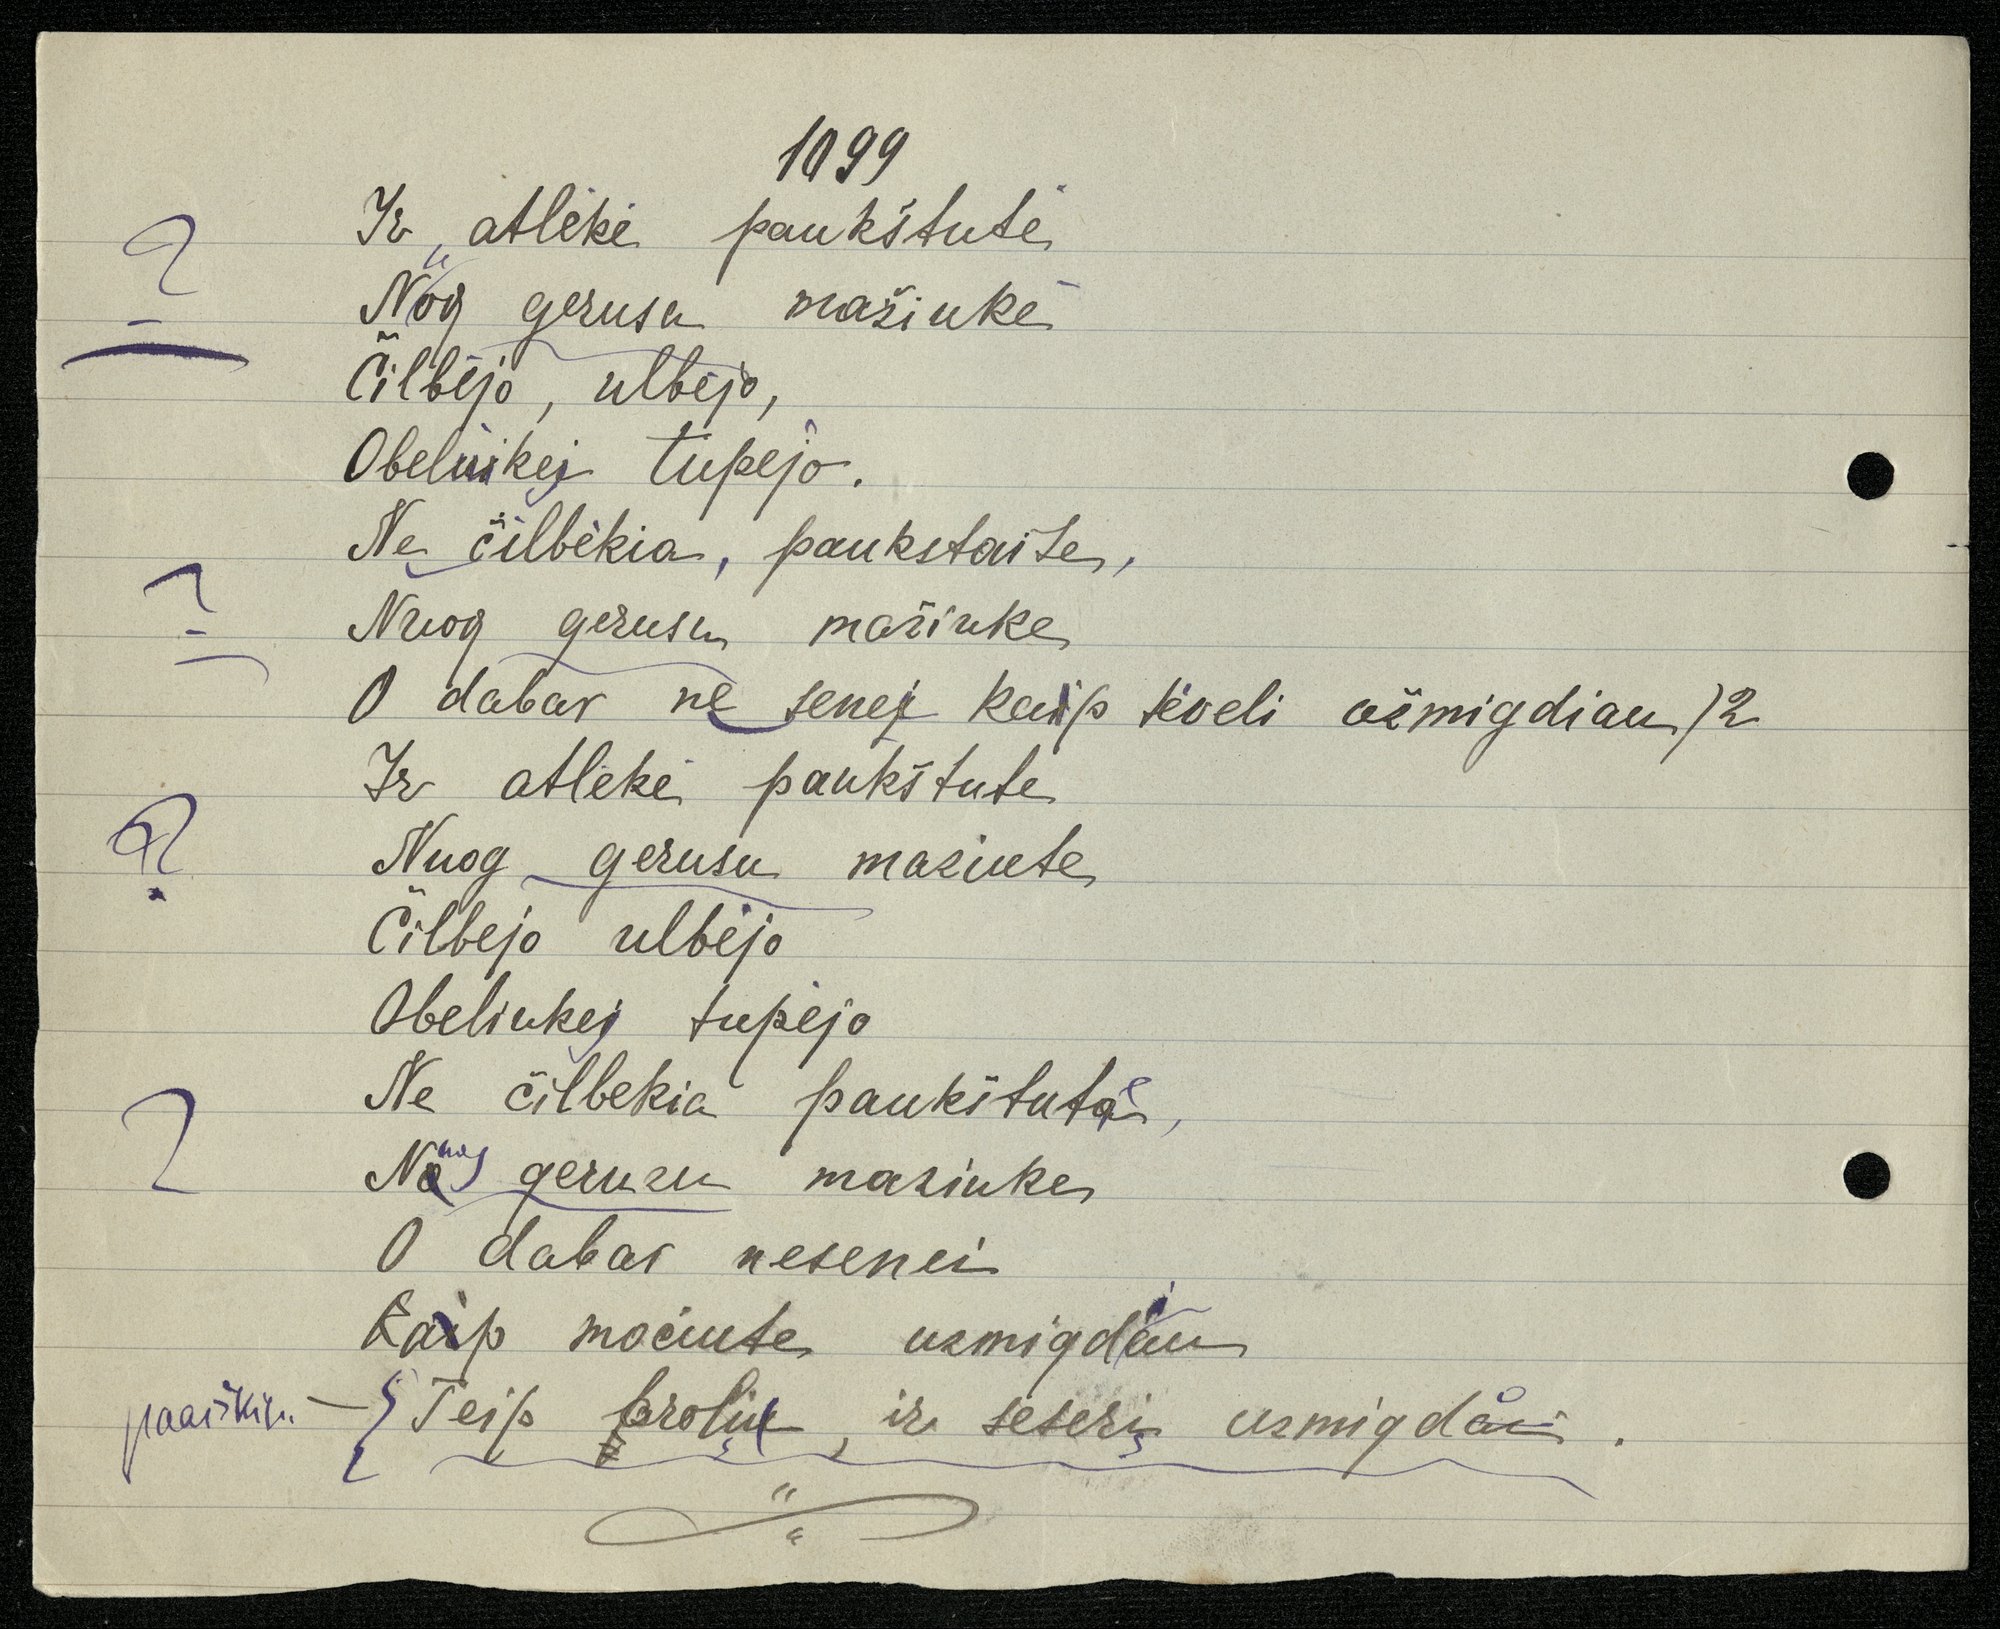 1099
Ir atlėkė paukštutė
Nuog gerusu mažiukė
Čilbėjo, ulbėjo,
Obeliukej tupėjo.
Ne čilbėkia, paukstaite,
Nuog gerusu mažiuke
O dabar ne senej kaip tėveli ažmigdiau)2
Ir atlėkė paukštute
Nuog gerusu maziute
Čilbejo ulbėjo
Obeliukej tupėjo
Ne čilbekia paukštute,
Nuog geruzu maziuke
O dabar nesenei
Kaip močiute uzmigdiau
paaiškin. — Teip broliu, ir seseri uzmigdäu.